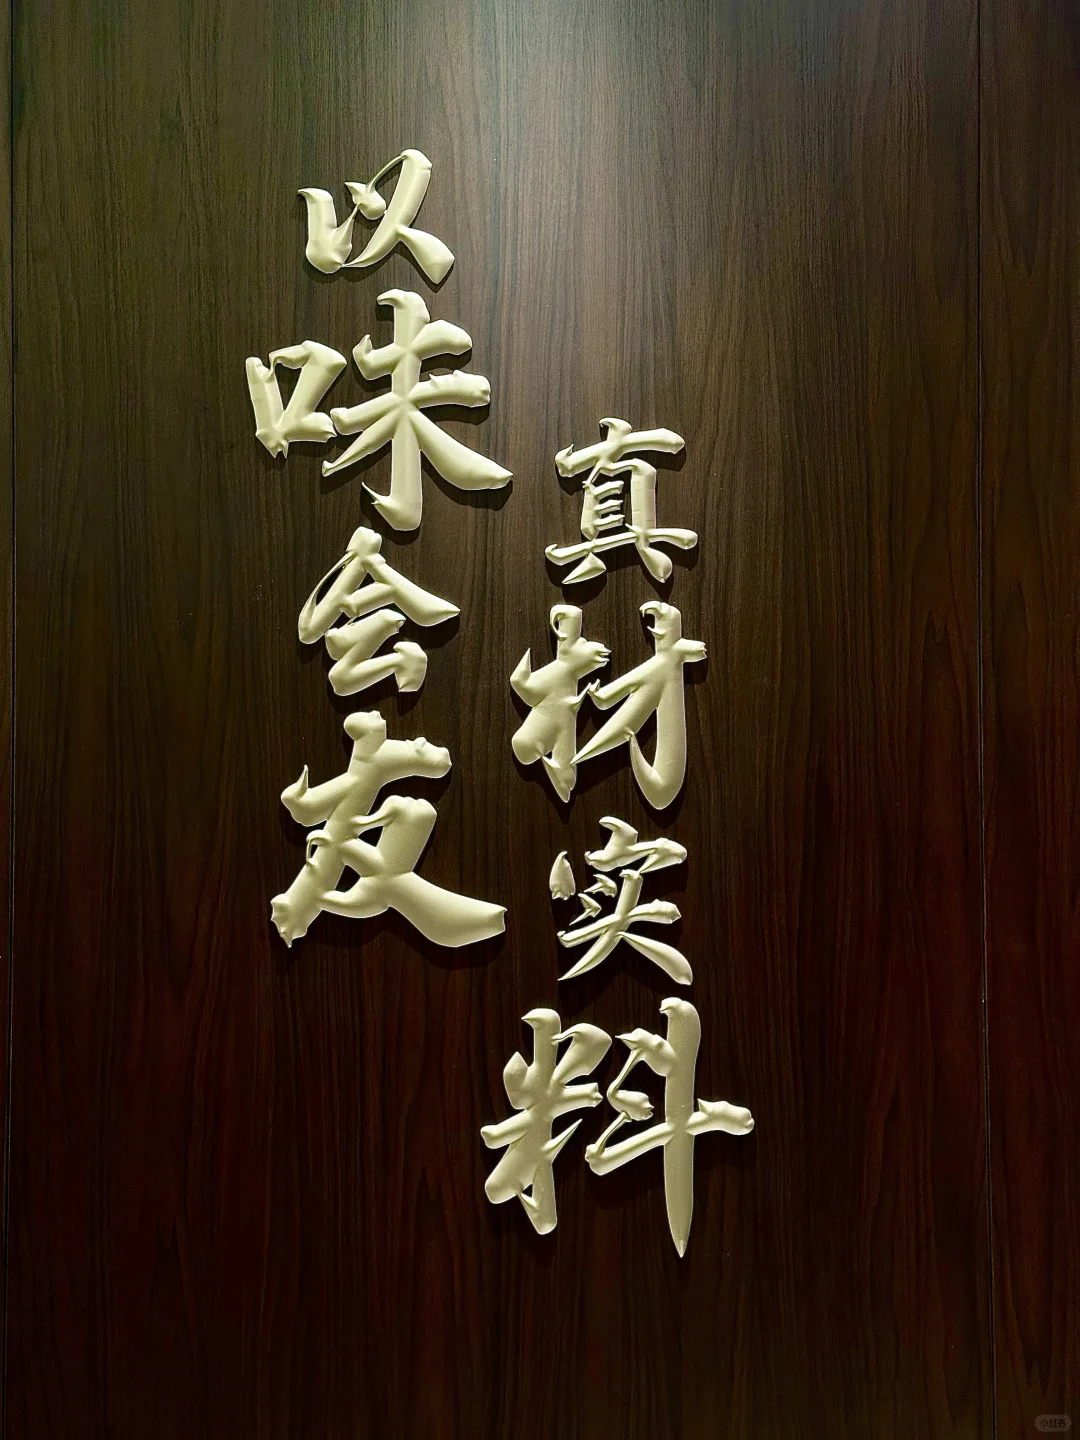 以味会友
真材实料
小红书